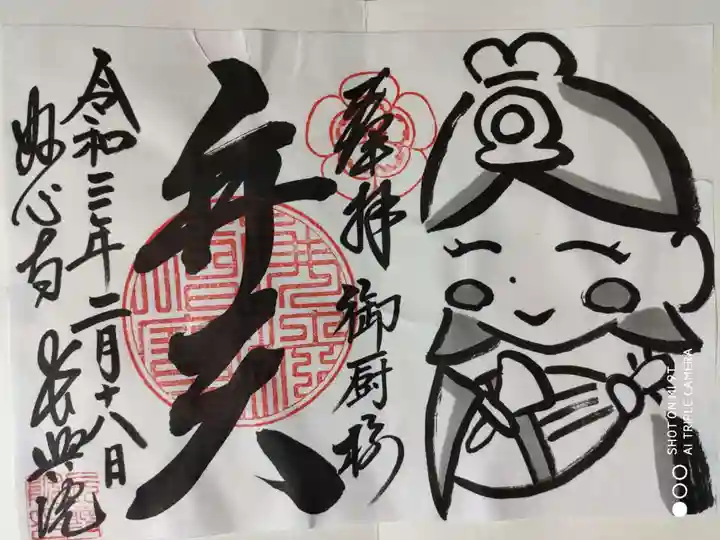 奉拝
御厨椅
弁天
令和三年二月十八日
妙心寺 長興院
SHOT ON MI 9T
AI TRIPLE CAMERA